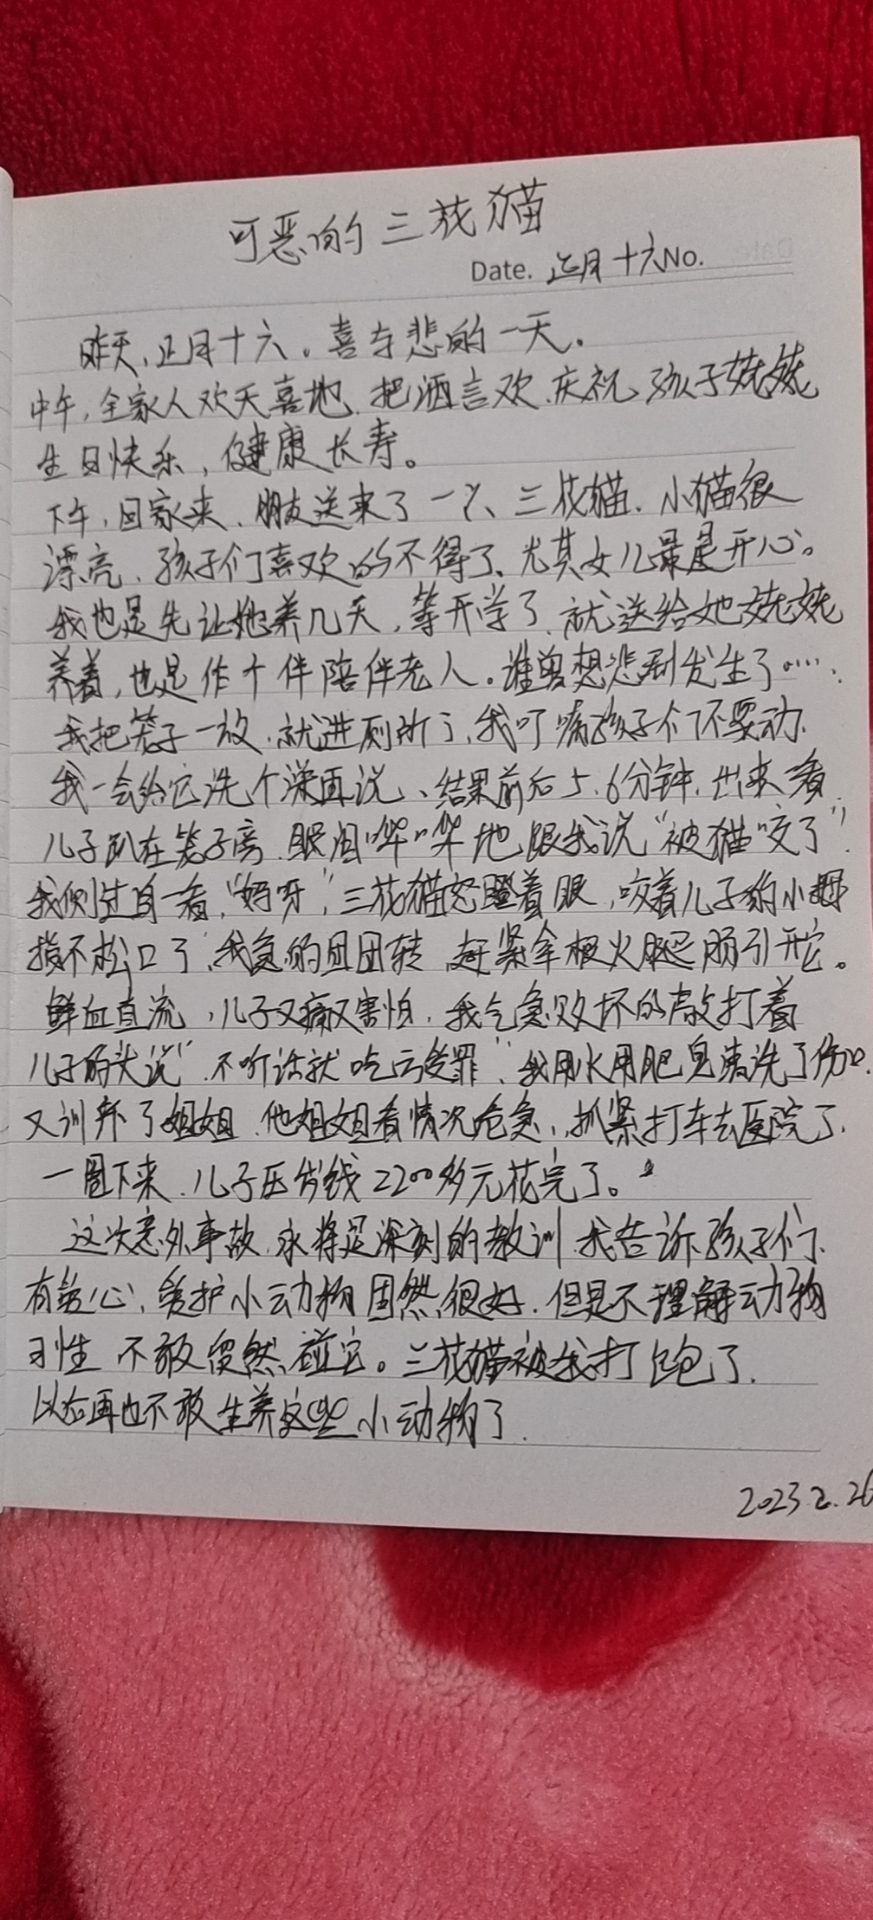 可恶的三花猫
Date. 正月十六No.
昨天,正月十六。喜与悲的一天。
中午,全家人欢天喜地,把酒言欢,庆祝孩子姥姥
生日快乐,健康长寿。
下午,回家来,朋友送来了一只三花猫,小猫很
漂亮,孩子们喜欢的不得了,尤其女儿最是开心。
我也是先让她养几天,等开学了,就送给她姥姥
养着,也是作个伴陪伴老人。谁曾想悲剧发生了……
我把笼子一放,就进厕所了,我叮嘱孩子们不要动,
我一会给它洗个澡再说、结果前后5.6分钟,出来看
儿子趴在笼子旁,眼泪哗哗地跟我说“被猫咬了”
我侧过身一看,“妈呀”,三花猫怒瞪着眼,咬着儿子的小拇
指不松口了,我急的团团转,赶紧拿根火腿肠引开它。
鲜血直流,儿子又痛又害怕,我气急败坏的敲打着
儿子的头说“不听话就吃亏受罪”,我用水用肥皂清洗了伤口,
又训斥了姐姐,他姐姐看情况危急,抓紧打车去医院了,
一圈下来,儿子压岁钱2200多元花完了。
这次意外事故,永将是深刻的教训,我告诉孩子们,
有爱心,爱护小动物固然很好,但是不理解动物
习性 不敢突然碰它。三花猫被我打跑了,
以后再也不敢生养这些小动物了.
2023 2.26